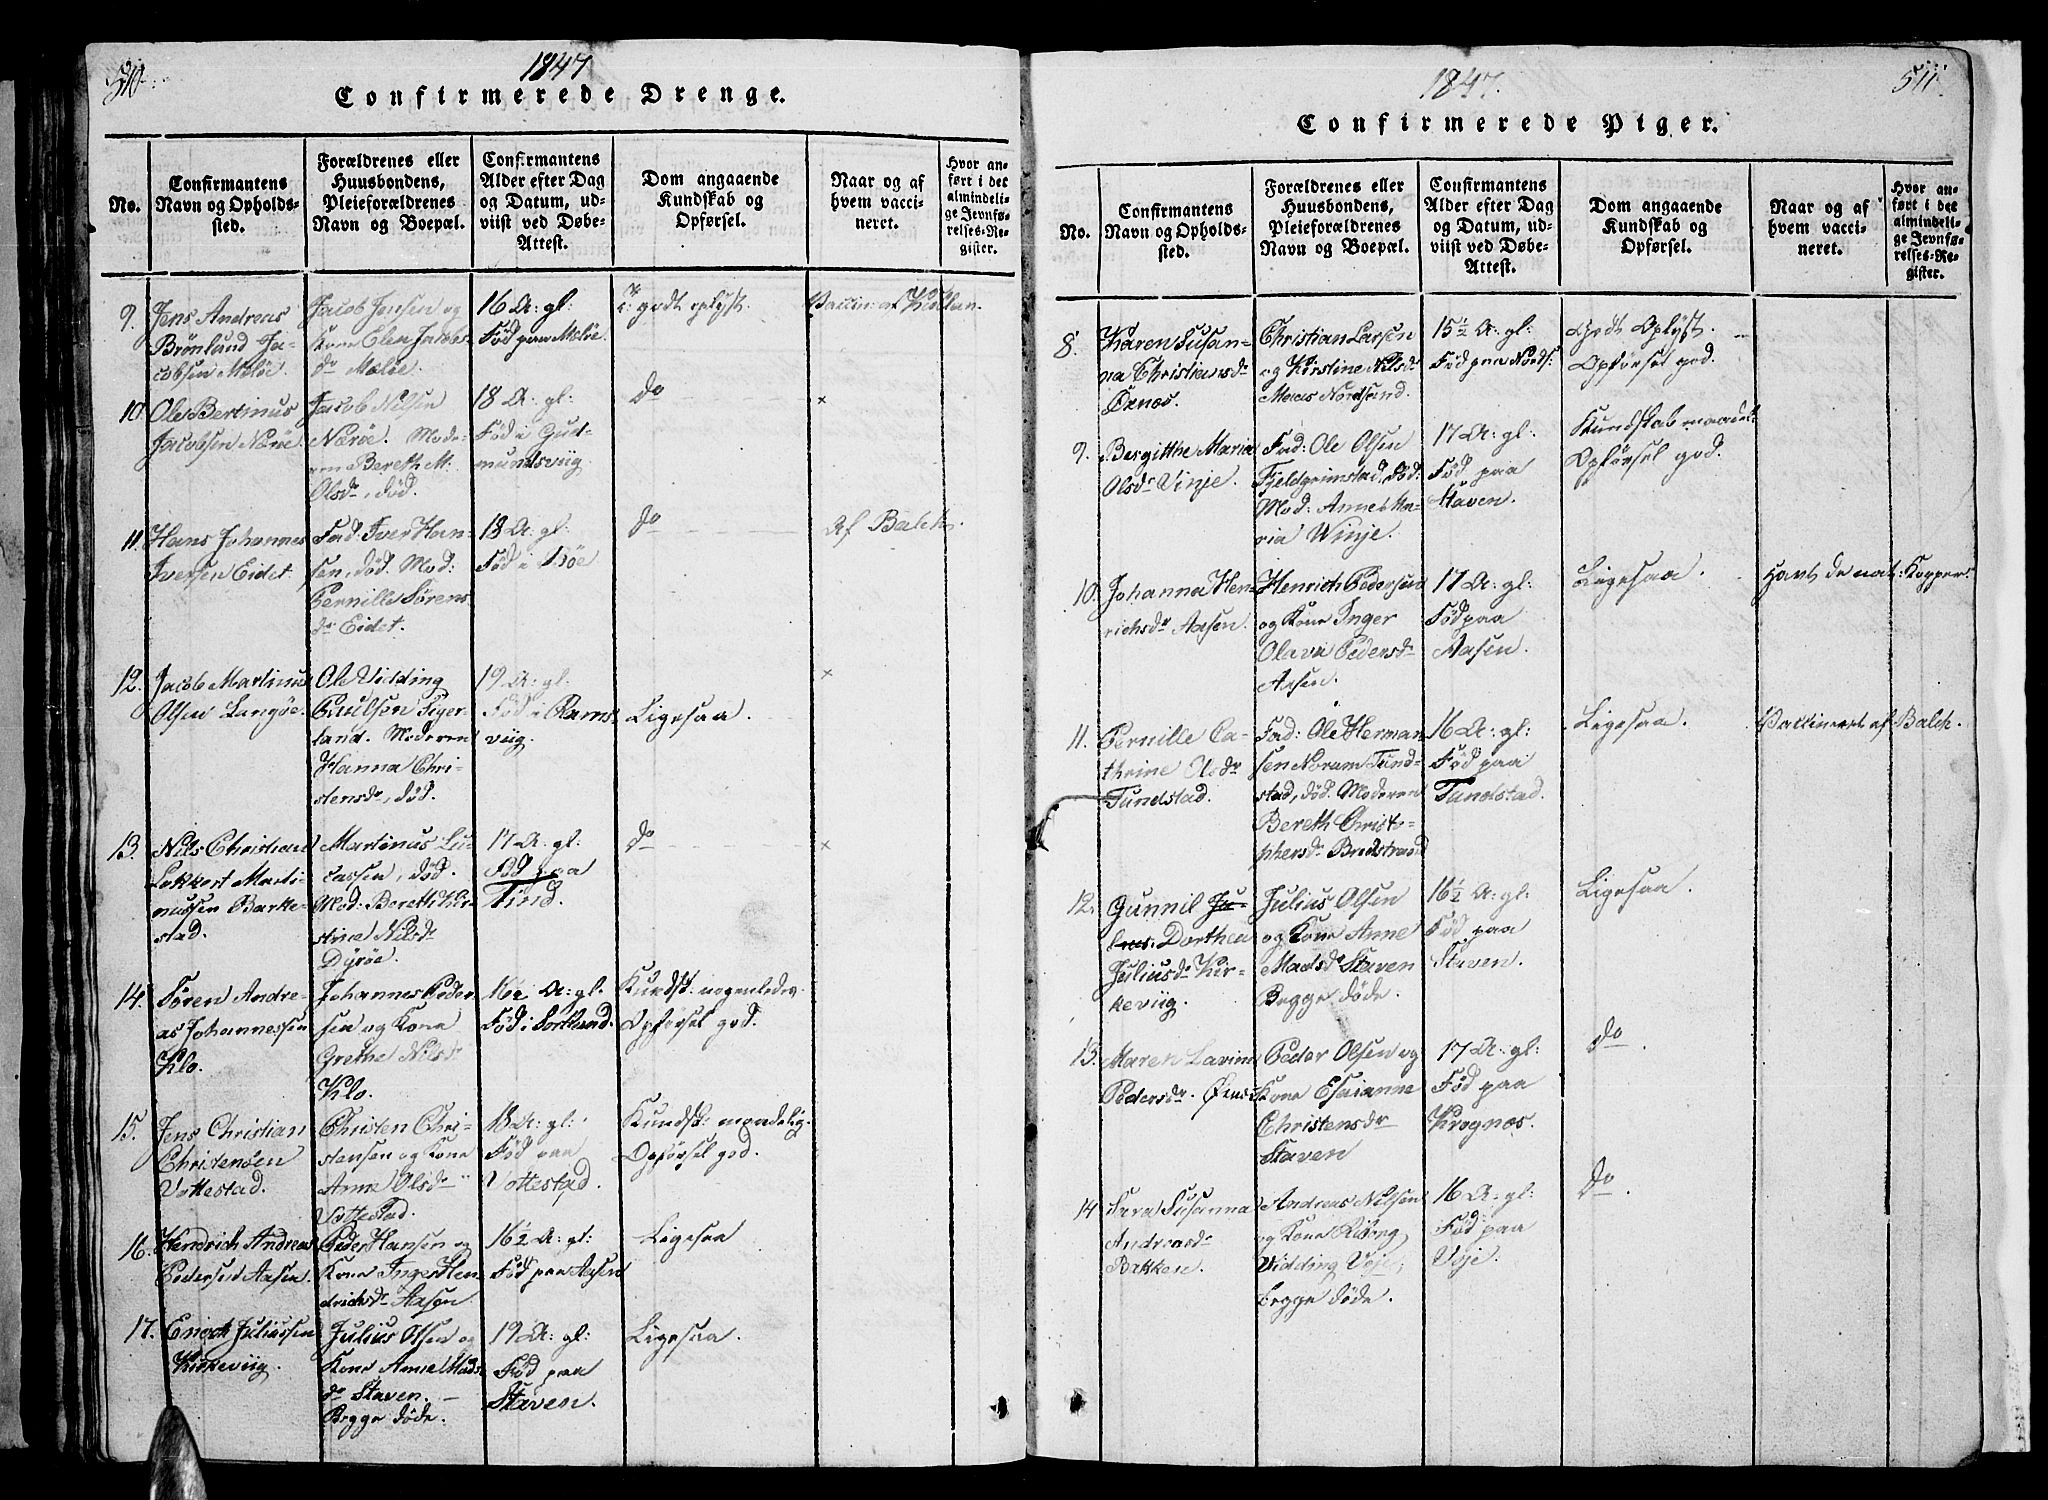 510.
1847
Confirmerede Drenge.
No.
Confirmantens
Navn og Opholds-
sted.
Forældrenes eller
Huusbondens,
Pleieforældrenes
Navn og Boepæl.
Confirmantens
Alder efter Dag
og Datum, ud-
viist ved Døbe-
Attest.
Dom angaaende
Kundskab og
Opførsel.
Naar og af
hvem vacci-
neret.
Hvor an-
ført i det
almindeli-
ge Jevnfø-
relses-Re-
gister.
9. Jens Andreas
Brønlund Ja-
cobsen Meløe.
Jacob Jensen og
Kone Elen Jacobs
dr Meløe.
16 A: gl:
Fød paa Meløe.
godt oplyst.
Vaccin: af Kiillan.
10. Ole Bertinus
Jacobsen Nærøe.
Jacob Nilsen
Nærøe. Mode-
ren Bereth M.
Olsdr, død.
18 A: gl:
Fød i Gud-
mundsviig.
do
×
11. Hans Johannes
Iversen Eidet
Fad: Iver Han-
sen, død. Mod:
Pernille Sørens
dr Eidet.
18 A: gl:
Fød i Bøe
do
Af Balch.
12. Jacob Martinus
Olsen Langøe.
Ole Vidding
Paulsen Tiger-
land. Moderen
Hanna Chri-
stensdr, død.
19 A: gl:
Fød i Rams-
viig.
Ligesaa.
×
13. Nils Christian
Lokkert Marti-
nussen Barke-
stad.
Martinus Lu-
cassen, død.
Mod: Bereth Kir-
stine Nilsdr
Dyrøe.
17 A: gl:
Fød paa
Tind.
do
×
14. Søren Andre-
as Johannessen
Klo.
Johannes Peder
sen og Kone
Grethe Nilsdr
Klo.
16½ A: gl.
Fød i Sortland.
Kundsk: nogenledes.
Opførsel god.
15. Jens Christian
Christensen
Vottestad.
Christen Chri-
stensen og Kone
Anne Olsdr
Vottestad.
18 A: gl:
Fød paa
Vottestad.
Kundsk: maadelig.
Opførsel god.
16. Hendrich Andreas
Pedersen Aasen.
Peder Hansen og
Kone Inger Hen
drichsdr Aasen.
16½ A: gl:
Fød paa Aasen
Ligesaa
17. Enoch Juliussen
Kirkeviig.
Julius Olsen og
Kone Anne Mads
dr Staven. —
Begge døde.
19 A: gl:
Fød paa
Staven.
Ligesaa.
511.
1847.
Confirmerede Piger.
No.
Confirmantens
Navn og Opholds-
sted.
Forældrenes eller
Huusbondens,
Pleieforældrenes
Navn og Boepæl.
Confirmantens
Alder efter Dag
og Datum, ud-
viist ved Døbe-
Attest.
Dom angaaende
Kundskab og
Opførsel.
Naar og af
hvem vacci-
neret.
Hvor an-
ført i det
almindeli-
ge Jevnfø-
relses-Re-
gister.
8. Karen Susan-
na Christiansdr
Øxnæs.
Christian Larsen
og Kirstine Nilsdr
Maas Nordsand.
15½ A: gl:
Fød paa Nords:
Godt Oplyst.
Opførsel god.
9. Bergitthe Maria
Olsdr Vinje.
Fad: Ole Olsen
Fjeldgrimstad, død:
Mod: Anne Ma-
ria Winje.
17 A: gl:
Fød paa
Staven.
Kundskab maadel:
Opførsel god.
10. Johanna Hen-
richsdr Aasen.
Henrich Pedersen
og Kone Inger
Olava Pedersdr
Aasen.
17 A: gl:
Fød paa
Aasen.
Ligesaa.
Havt de nat: Kopper.
11. Pernille Ca-
thrine Olsdr
Tundstad.
Fad: Ole Herman
sen Noram Tund-
stad, død. Moderen
Bereth Christo-
phersdr Bredstrand
16 A: gl:
Fød paa
Tundstad.
Ligesaa.
Vaccineret af Balch.
12. Gunnil Ju-
lius. Dorthea
Juliusdr Kir-
keviig.
Julius Olsen
og Kone Anne
Madsdr Staven
Begge døde.
16½ A: gl:
Fød paa
Staven.
Ligesaa.
13. Maren Lavine
Pedersdr.
Peder Olsen og
Kone Esaianne
Christensdr
Staven
17 A: gl:
Fød paa
Krognæs.
do.
14 Sara Susanna
Andreasdr
Bakken.
Andreas Nilsen
og Kone
Vidding Veje,
begge døde.
16 A: gl:
Fød paa
Veje.
do.